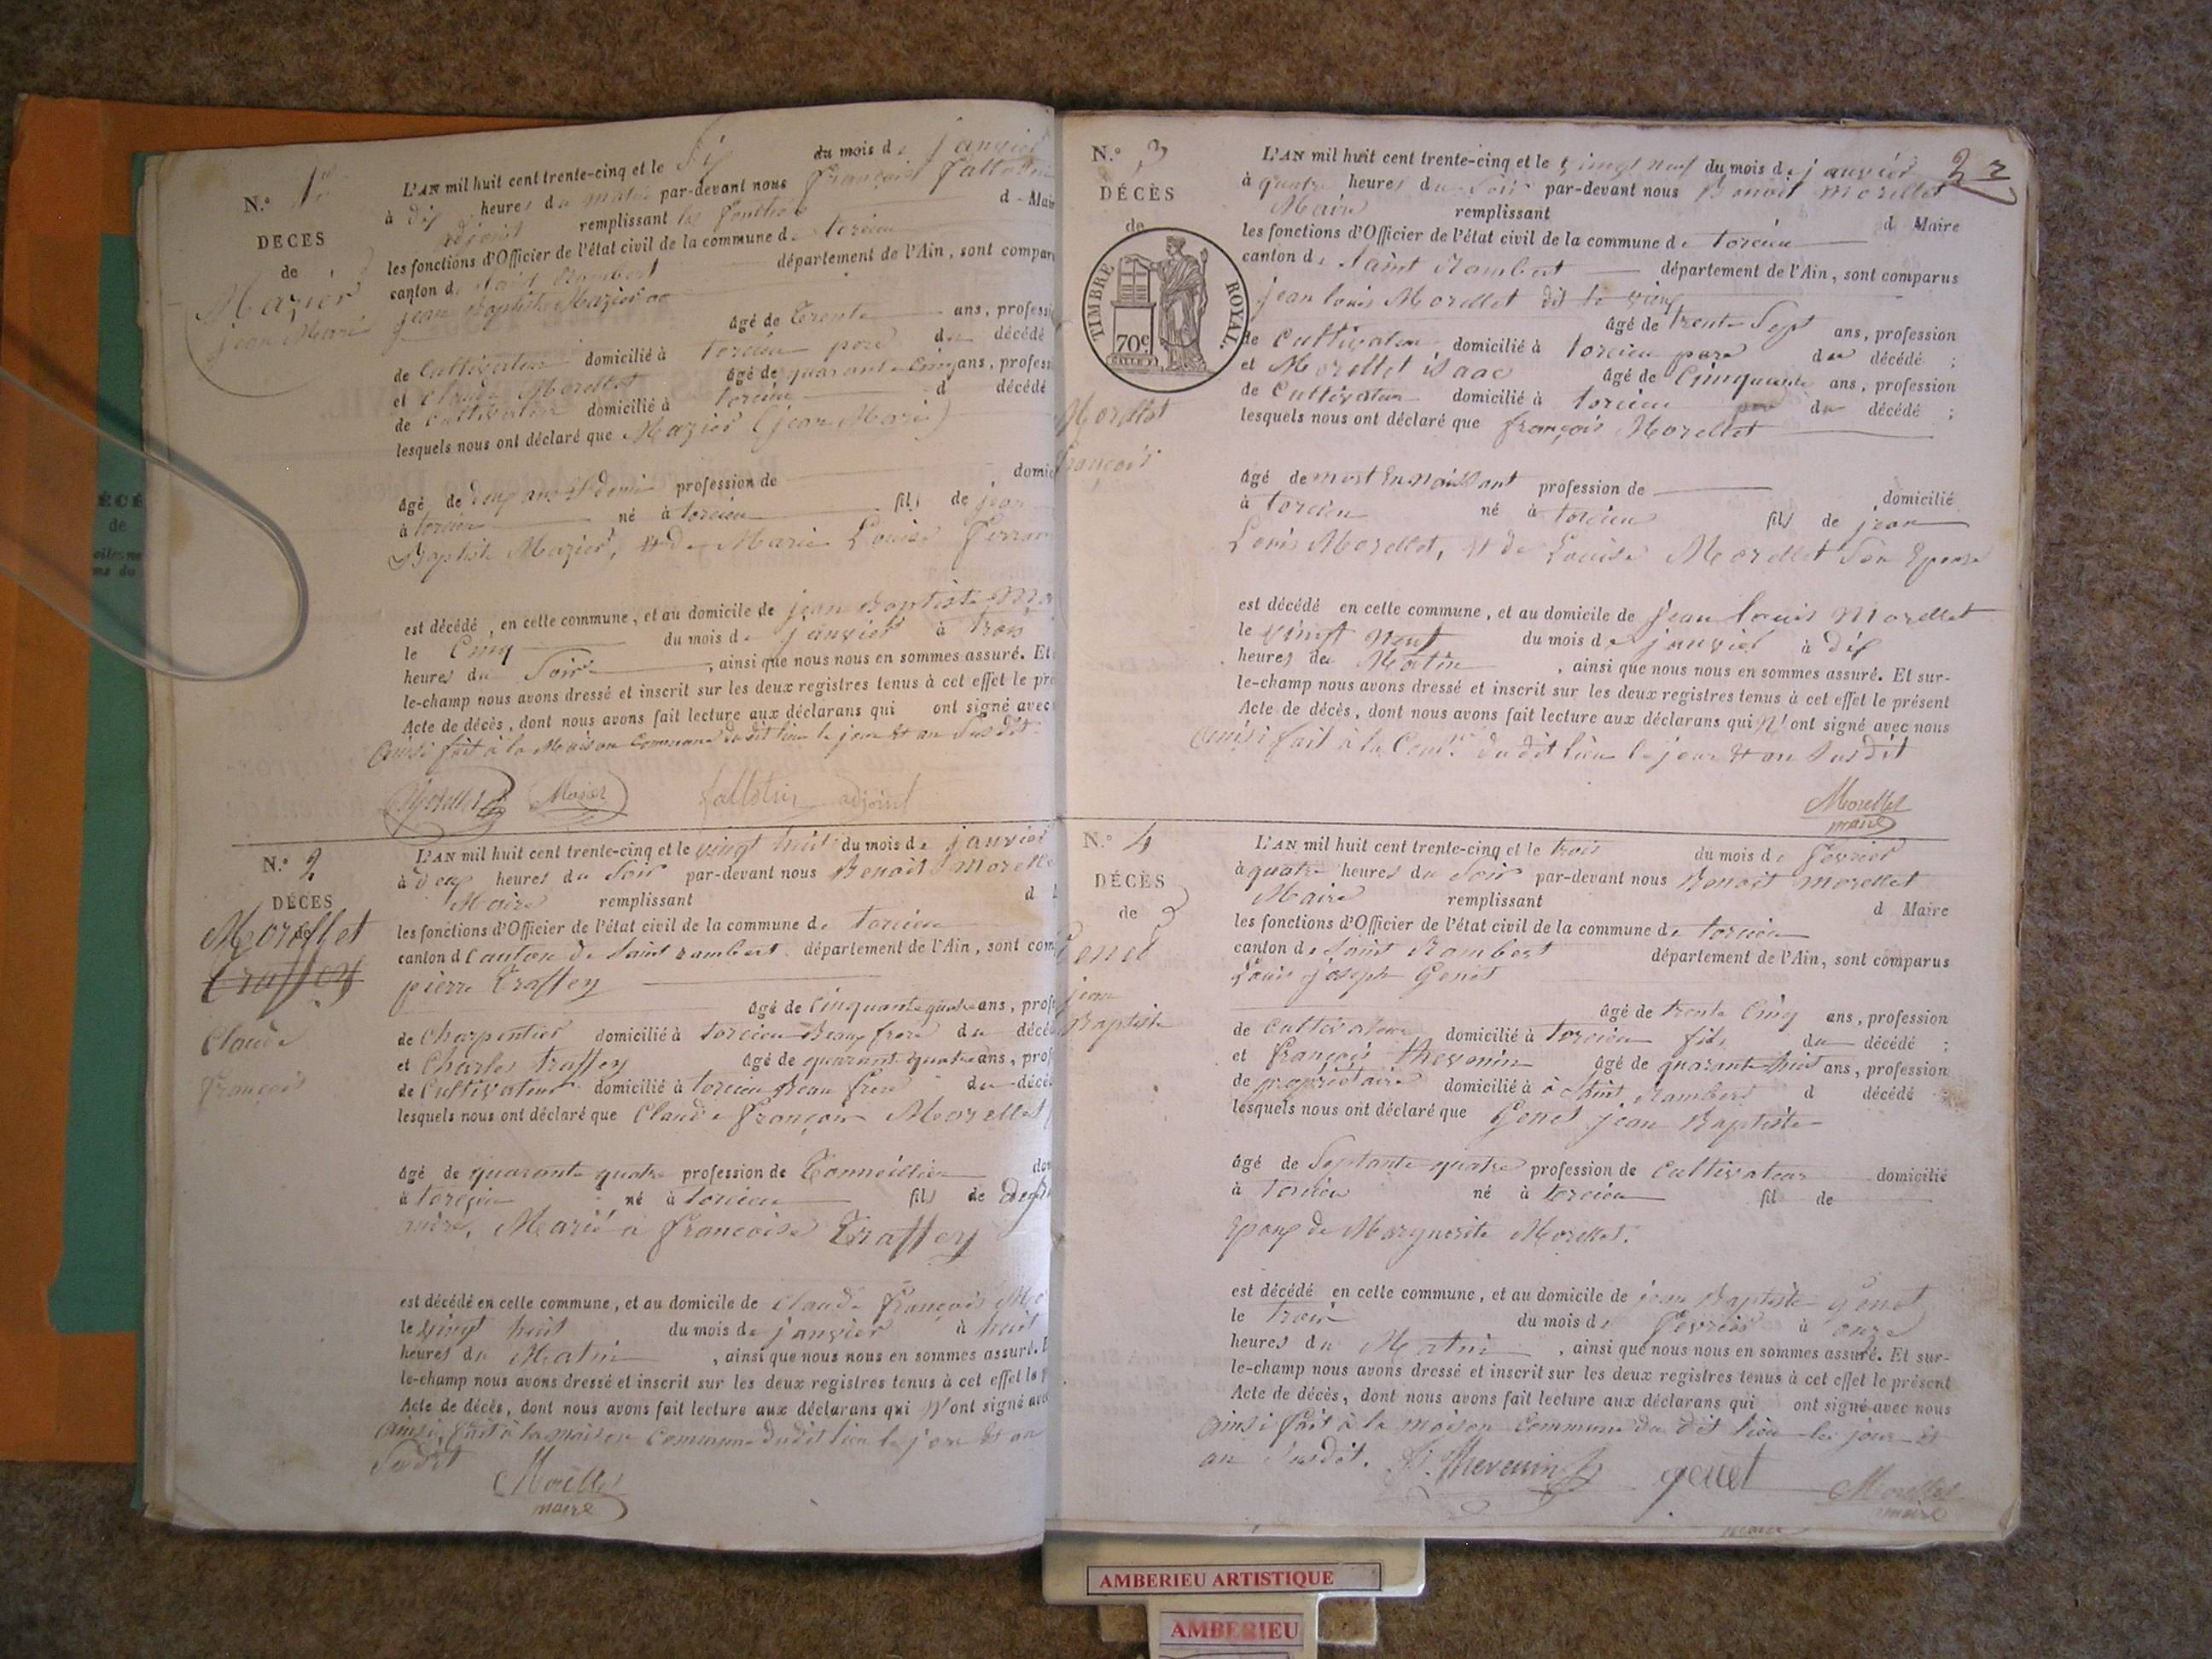 N.º 1er
DÉCÈS
de
Mazier
jean Marie
L'AN mil huit cent trente-cinq et le Six du mois de janvier
à dix heures du matin par-devant nous françois fallotin
adjoint remplissant les fonctions d Maire
les fonctions d'Officier de l'état civil de la commune de torcieu
canton de Saint Rambert département de l'Ain, sont compar
jean Baptiste Mazier
âgé de trente ans, professi
de Cultivateur domicilié à torcieu pere du décédé
et Claude Morellet âgé de quarante Cinq ans, profess
de Cultivateur domicilié à torcieu d décédé
lesquels nous ont déclaré que Mazier (jean Marie)
âgé de deux ans et demi profession de domic
à torcieu né à torcieu fils de jean
Baptiste Mazier, et de Marie Louise Ferran
est décédé, en cette commune, et au domicile de jean Baptiste Ma
le Cinq du mois de janvier à trois
heures du Soir, ainsi que nous nous en sommes assuré. Et
le-champ nous avons dressé et inscrit sur les deux registres tenus à cet effet le pré
Acte de décès, dont nous avons fait lecture aux déclarans qui ont signé avec
Ainsi fait à la Maison Commune du dit lieu le jour et an Susdit.
Morellet Mazier fallotin adjoint
N.º 2
DÉCÈS
de
Morellet
Traffey
Claude
François
L'AN mil huit cent trente-cinq et le vingt huit du mois de janvier
à deux heures du Soir par-devant nous Benoit Morelle
Maire remplissant d
les fonctions d'Officier de l'état civil de la commune de torcieu
canton d Canton de Saint rambert département de l'Ain, sont com
pierre Traffey
âgé de Cinquante quatre ans, prof
de Charpentier domicilié à torcieu Beaux frere du décé
et Charles Traffey âgé de quarante quatre ans, prof
de Cultivateur domicilié à torcieu Beau frere du décé
lesquels nous ont déclaré que Claude françois Morellet
âgé de quarante quatre profession de Tonneillier do
à torcieu né à torcieu fils de
Marié a francoise Traffey
est décédé en cette commune, et au domicile de Claude françois Mo
le vingt huit du mois de janvier à huit
heures du Matin, ainsi que nous nous en sommes assuré. E
le-champ nous avons dressé et inscrit sur les deux registres tenus à cet effet le p
Acte de décès, dont nous avons fait lecture aux déclarans qui N'ont signé avec
Ainsi fait à la maison Commune dudit lieu le jour et an
Susdit
Morellet
maire
2 2
N.º 3
DÉCÈS
de
TIMBRE ROYAL.
70c
Morellet
françois
L'AN mil huit cent trente-cinq et le vingt neuf du mois de janvier
à quatre heures du Soir par-devant nous Benoit Morellet
Maire remplissant d Maire
les fonctions d'Officier de l'état civil de la commune de torcieu
canton de Saint Rambert département de l'Ain, sont comparus
jean louis Morellet dit le
âgé de trente Sept ans, profession
de Cultivateur domicilié à torcieu pere du décédé ;
et Morellet isaac âgé de Cinquante ans, profession
de Cultivateur domicilié à torcieu du décédé ;
lesquels nous ont déclaré que françois Morellet
âgé de mort En naissant profession de domicilié
à torcieu né à torcieu fils de jean
Louis Morellet, et de Louise Morellet Son Epouse
est décédé en cette commune, et au domicile de jean louis Morellet
le vingt neuf du mois de janvier à dix
heures du Matin, ainsi que nous nous en sommes assuré. Et sur-
le-champ nous avons dressé et inscrit sur les deux registres tenus à cet effet le présent
Acte de décès, dont nous avons fait lecture aux déclarans qui N'ont signé avec nous
Ainsi fait à la du dit lieu le jour et an Susdit
Morellet
maire
N.º 4
DÉCÈS
de
Genet
jean
Baptiste
L'AN mil huit cent trente-cinq et le trois du mois de fevrier
à quatre heures du Soir par-devant nous Benoit Morellet
Maire remplissant d Maire
les fonctions d'Officier de l'état civil de la commune de torcieu
canton de Saint Rambert département de l'Ain, sont comparus
Louis joseph Genet
âgé de trente Cinq ans, profession
de Cultivateur domicilié à torcieu fils du décédé ;
et françois thevenin âgé de quarante huit ans, profession
de propriétaire domicilié à à Saint Rambert d décédé
lesquels nous ont déclaré que Genet jean Baptiste
âgé de Septante quatre profession de Cultivateur domicilié
à torcieu né à torcieu fil de
Epoux de Marguerite Morellet.
est décédé en cette commune, et au domicile de jean Baptiste Genet
le trois du mois de fevrier à onze
heures du Matin, ainsi que nous nous en sommes assuré. Et sur-
le-champ nous avons dressé et inscrit sur les deux registres tenus à cet effet le présent
Acte de décès, dont nous avons fait lecture aux déclarans qui ont signé avec nous
Ainsi fait à la maison Commune du dit lieu les jour et
an Susdit. Thevenin genet Morellet
maire
AMBERIEU ARTISTIQUE
AMBERIEU